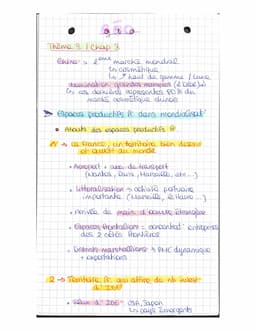 Thème 3 / Chap 3
Chine : 2ème marché mondial
↳ cosmétique
↳ haut de gamme / luxe
domination grandes marques
↳ ces dernières représentent
marché cosmétique chinois
→ Espaces productifs Fr dans mondialisat°
• Atouts des espaces productifs fr
1/ → La France, un territoire bien desservi
et ouvert au monde
• Aéroport + axes de transport
(Nantes, Paris, Marseille, etc...)
• Littoralisation → activité portuaire
importante (Marseille, le Havre...)
• arrivée de main d'œuvre étrangère
• Espaces frontaliers : concentrat° entreprises
des 2 côtés frontières
• Districts marshalliens → PME dynamique
+ exportations
2 → Territoire fr qui attire de nb invest
d'IDE
• USA, Japon
↳ pays émergents